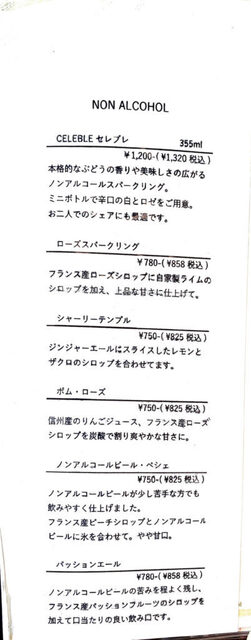 NON ALCOHOL
CELEBLE セレブレ 355ml
¥1,200-(¥1,320 税込)
本格的なぶどうの香りや美味しさの広がる
ノンアルコールスパークリング。
ミニボトルで辛口の白とロゼをご用意。
お二人でのシェアにも最適です。
ローズスパークリング
¥780-(¥858 税込)
フランス産ローズシロップに自家製ライムの
シロップを加え、上品な甘さに仕上げて。
シャーリーテンプル
¥750-(¥825 税込)
ジンジャーエールにスライスしたレモンと
ザクロのシロップを合わせてます。
ポム・ローズ
¥750-(¥825 税込)
信州産のりんごジュース、フランス産ローズ
シロップを炭酸で割り爽やかな甘さに。
ノンアルコールビール・ペシェ
¥750-(¥825 税込)
ノンアルコールビールが少し苦手な方でも
飲みやすく仕上げました。
フランス産ピーチシロップとノンアルコール
ビールに氷を合わせて。やや甘口。
パッションエール
¥780-(¥858 税込)
ノンアルコールビールの苦みを程よく残し、
フランス産パッションフルーツのシロップを
加えて口当たりの良い飲み口です。